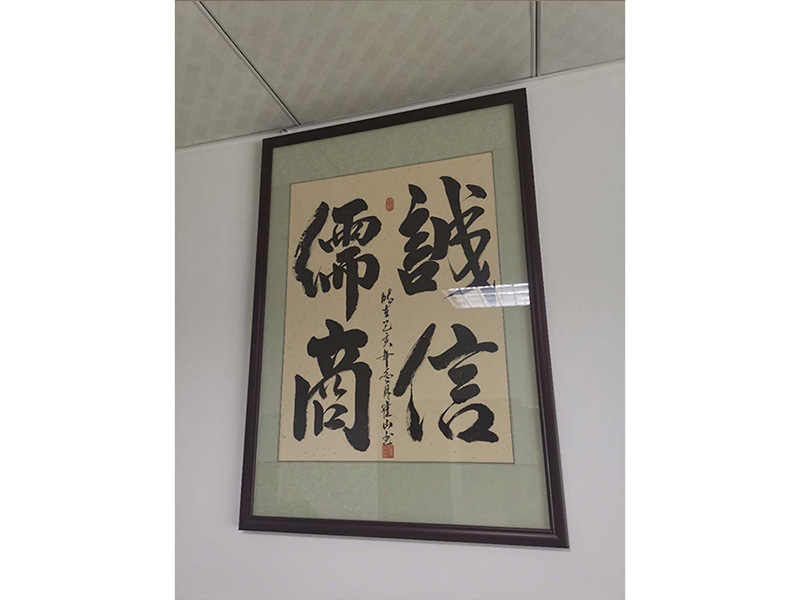 誠信
儒商
時在己亥年冬月建山書